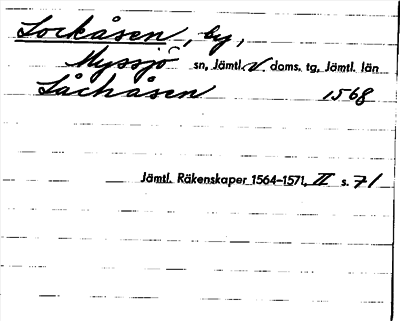 Lockåsen, by,
Myssjö sn, Jämtl. V. doms. tg, Jämtl. län
Låchåsen 1568
Jämtl. Räkenskaper 1564–1571, II s. 71